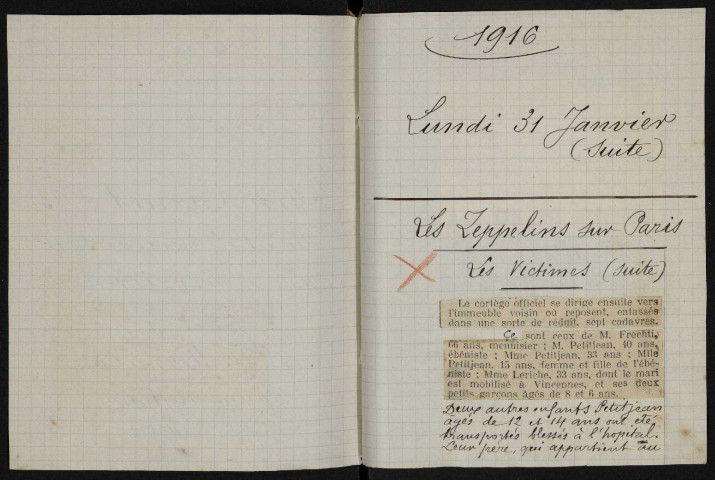 1916
Lundi 31 Janvier
(suite)
Les Zeppelins sur Paris
Les Victimes (suite)
Le cortège officiel se dirige ensuite vers
l'immeuble voisin où reposent, entassés
dans une sorte de réduit, sept cadavres.
Ce sont ceux de M. Frechti,
66 ans, menuisier ; M. Petitjean, 40 ans,
ébéniste ; Mme Petitjean, 33 ans ; Mlle
Petitjean, 15 ans, femme et fille de l'ébé-
niste ; Mme Leriche, 33 ans, dont le mari
est mobilisé à Vincennes, et ses deux
petits garçons âgés de 8 et 6 ans.
Deux autres enfants Petitjean
âgés de 12 et 14 ans ont été
transportés blessés à l'hopital.
Leur père, qui appartient au